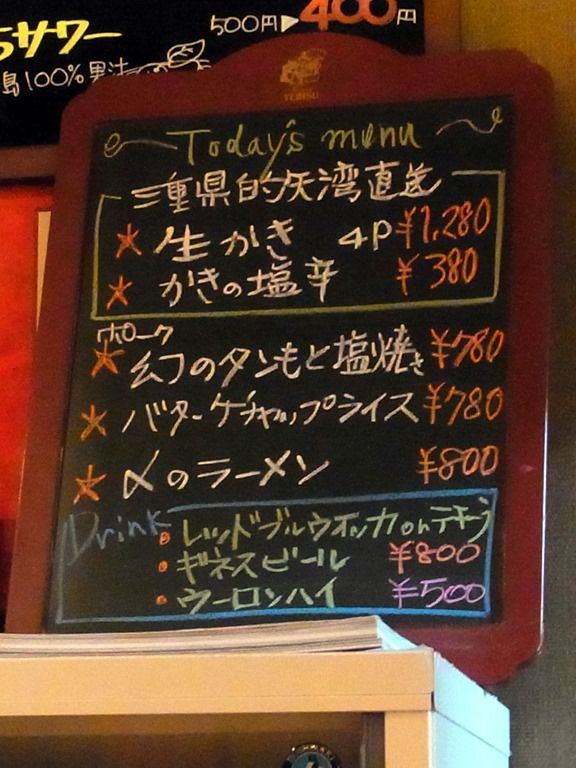 サワー
500円▶400円
島100%果汁
YEBISU
Today's menu
三重県的矢湾直送
★ 生かき 4P ¥1,280
★ かきの塩辛 ¥380
★ 幻のタンもと塩焼き ¥780
★ バターケチャップライス ¥780
★ 〆のラーメン ¥800
Drink
・レッドブルウォッカ or テキーラ
・ギネスビール ¥800
・ウーロンハイ ¥500